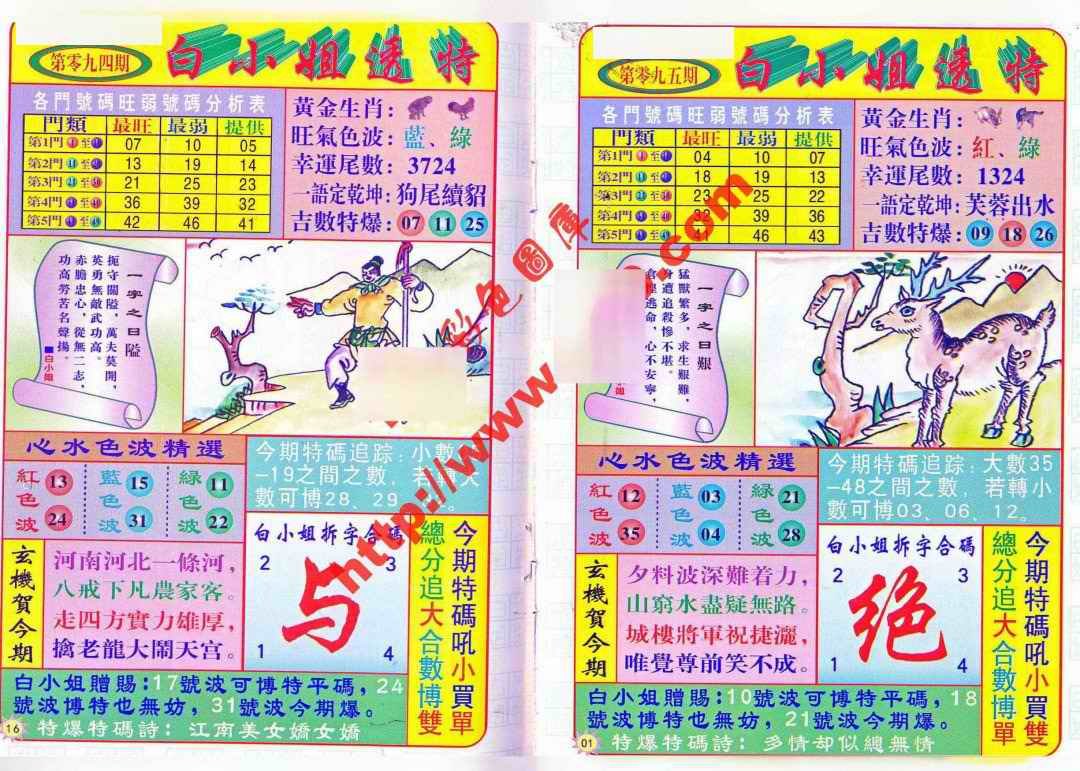 第零九四期
白小姐透特
各門號碼旺弱號碼分析表
門類 最旺 最弱 提供
第1門 至 07 10 05
第2門 至 13 19 14
第3門 至 21 25 23
第4門 至 36 39 32
第5門 至 42 46 41
黃金生肖：
旺氣色波：藍、綠
幸運尾數：3724
一語定乾坤：狗尾續貂
吉數特爆：07 11 25
一字之曰隘
扼守關隘，萬夫莫開，
英勇無敵武功高。
赤膽忠心，從無二志，
功高勞苦名聲揚。
■白小姐
心水色波精選
紅色波 13 24
藍色波 15 31
綠色波 11 22
今期特碼追踪：小數
-19之間之數，若轉大
數可博28、29
玄機賀今期
河南河北一條河，
八戒下凡農家客。
走四方實力雄厚，
擒老龍大鬧天宮。
白小姐拆字合碼
2 3
与
1 4
總分追大合數博雙
今期特碼吼小買單
白小姐贈賜：17號波可博特平碼，24
號波博特也無妨，31號波今期爆。
16
特爆特碼詩：江南美女嬌女嬌
第零九五期
白小姐透特
各門號碼旺弱號碼分析表
門類 最旺 最弱 提供
第1門 至 04 10 07
第2門 至 18 19 13
第3門 至 23 25 22
第4門 至 32 39 36
第5門 至 41 46 43
黃金生肖：
旺氣色波：紅、綠
幸運尾數：1324
一語定乾坤：芙蓉出水
吉數特爆：09 18 26
一字之曰艱
猛獸繁多，求生艱難，
身遭追殺慘不堪。
倉惶逃命，心不安寧，
心水色波精選
紅色波 12 35
藍色波 03 04
綠色波 21 28
今期特碼追踪：大數35
-48之間之數，若轉小
數可博03、06、12。
玄機賀今期
夕料波深難着力，
山窮水盡疑無路。
城樓將軍祝捷灑，
唯覺尊前笑不成。
白小姐拆字合碼
2 3
绝
1 4
總分追大合數博單
今期特碼吼小買雙
白小姐贈賜：10號波可博特平碼，18
號波博特也無妨，21號波今期爆。
01
特爆特碼詩：多情却似總無情
http://www
彩色圖庫
.com